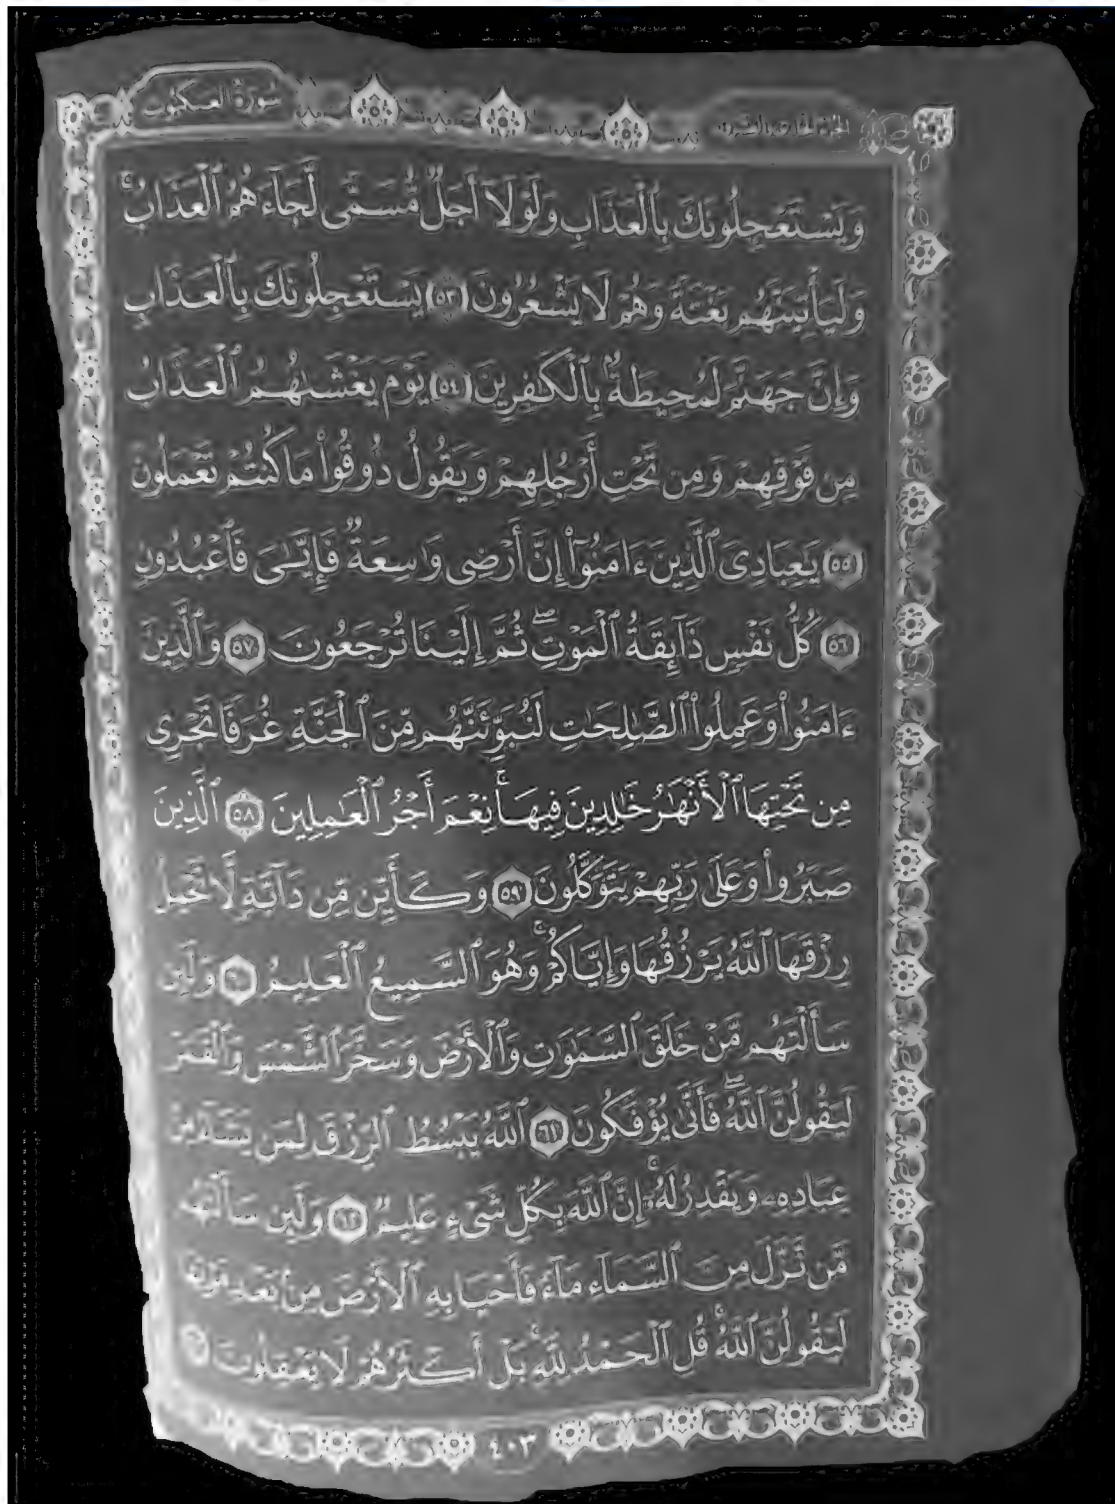 سُورَةُ العَنكَبُوت
الجُزْءُ الحَادِي وَالعِشْرُونَ
وَيَسْتَعْجِلُونَكَ بِٱلْعَذَابِ وَلَوْلَآ أَجَلٌ مُّسَمًّى لَّجَآءَهُمُ ٱلْعَذَابُ ۚ
وَلَيَأْتِيَنَّهُم بَغْتَةً وَهُمْ لَا يَشْعُرُونَ ﴿٥٣﴾ يَسْتَعْجِلُونَكَ بِٱلْعَذَابِ
وَإِنَّ جَهَنَّمَ لَمُحِيطَةٌۢ بِٱلْكَٰفِرِينَ ﴿٥٤﴾ يَوْمَ يَغْشَىٰهُمُ ٱلْعَذَابُ
مِن فَوْقِهِمْ وَمِن تَحْتِ أَرْجُلِهِمْ وَيَقُولُ ذُوقُوا۟ مَا كُنتُمْ تَعْمَلُونَ
﴿٥٥﴾ يَٰعِبَادِىَ ٱلَّذِينَ ءَامَنُوٓا۟ إِنَّ أَرْضِى وَٰسِعَةٌ فَإِيَّٰىَ فَٱعْبُدُونِ
﴿٥٦﴾ كُلُّ نَفْسٍ ذَآئِقَةُ ٱلْمَوْتِ ۖ ثُمَّ إِلَيْنَا تُرْجَعُونَ ﴿٥٧﴾ وَٱلَّذِينَ
ءَامَنُوا۟ وَعَمِلُوا۟ ٱلصَّٰلِحَٰتِ لَنُبَوِّئَنَّهُم مِّنَ ٱلْجَنَّةِ غُرَفًا تَجْرِى
مِن تَحْتِهَا ٱلْأَنْهَٰرُ خَٰلِدِينَ فِيهَا ۚ نِعْمَ أَجْرُ ٱلْعَٰمِلِينَ ﴿٥٨﴾ ٱلَّذِينَ
صَبَرُوا۟ وَعَلَىٰ رَبِّهِمْ يَتَوَكَّلُونَ ﴿٥٩﴾ وَكَأَيِّن مِّن دَآبَّةٍ لَّا تَحْمِلُ
رِزْقَهَا ٱللَّهُ يَرْزُقُهَا وَإِيَّاكُمْ ۚ وَهُوَ ٱلسَّمِيعُ ٱلْعَلِيمُ ﴿٦٠﴾ وَلَئِن
سَأَلْتَهُم مَّنْ خَلَقَ ٱلسَّمَٰوَٰتِ وَٱلْأَرْضَ وَسَخَّرَ ٱلشَّمْسَ وَٱلْقَمَرَ
لَيَقُولُنَّ ٱللَّهُ ۖ فَأَنَّىٰ يُؤْفَكُونَ ﴿٦١﴾ ٱللَّهُ يَبْسُطُ ٱلرِّزْقَ لِمَن يَشَآءُ مِنْ
عِبَادِهِۦ وَيَقْدِرُ لَهُۥٓ ۚ إِنَّ ٱللَّهَ بِكُلِّ شَىْءٍ عَلِيمٌ ﴿٦٢﴾ وَلَئِن سَأَلْتَهُم
مَّن نَّزَّلَ مِنَ ٱلسَّمَآءِ مَآءً فَأَحْيَا بِهِ ٱلْأَرْضَ مِنۢ بَعْدِ مَوْتِهَا
لَيَقُولُنَّ ٱللَّهُ ۚ قُلِ ٱلْحَمْدُ لِلَّهِ ۚ بَلْ أَكْثَرُهُمْ لَا يَعْقِلُونَ ﴿٦٣﴾
٤٠٣